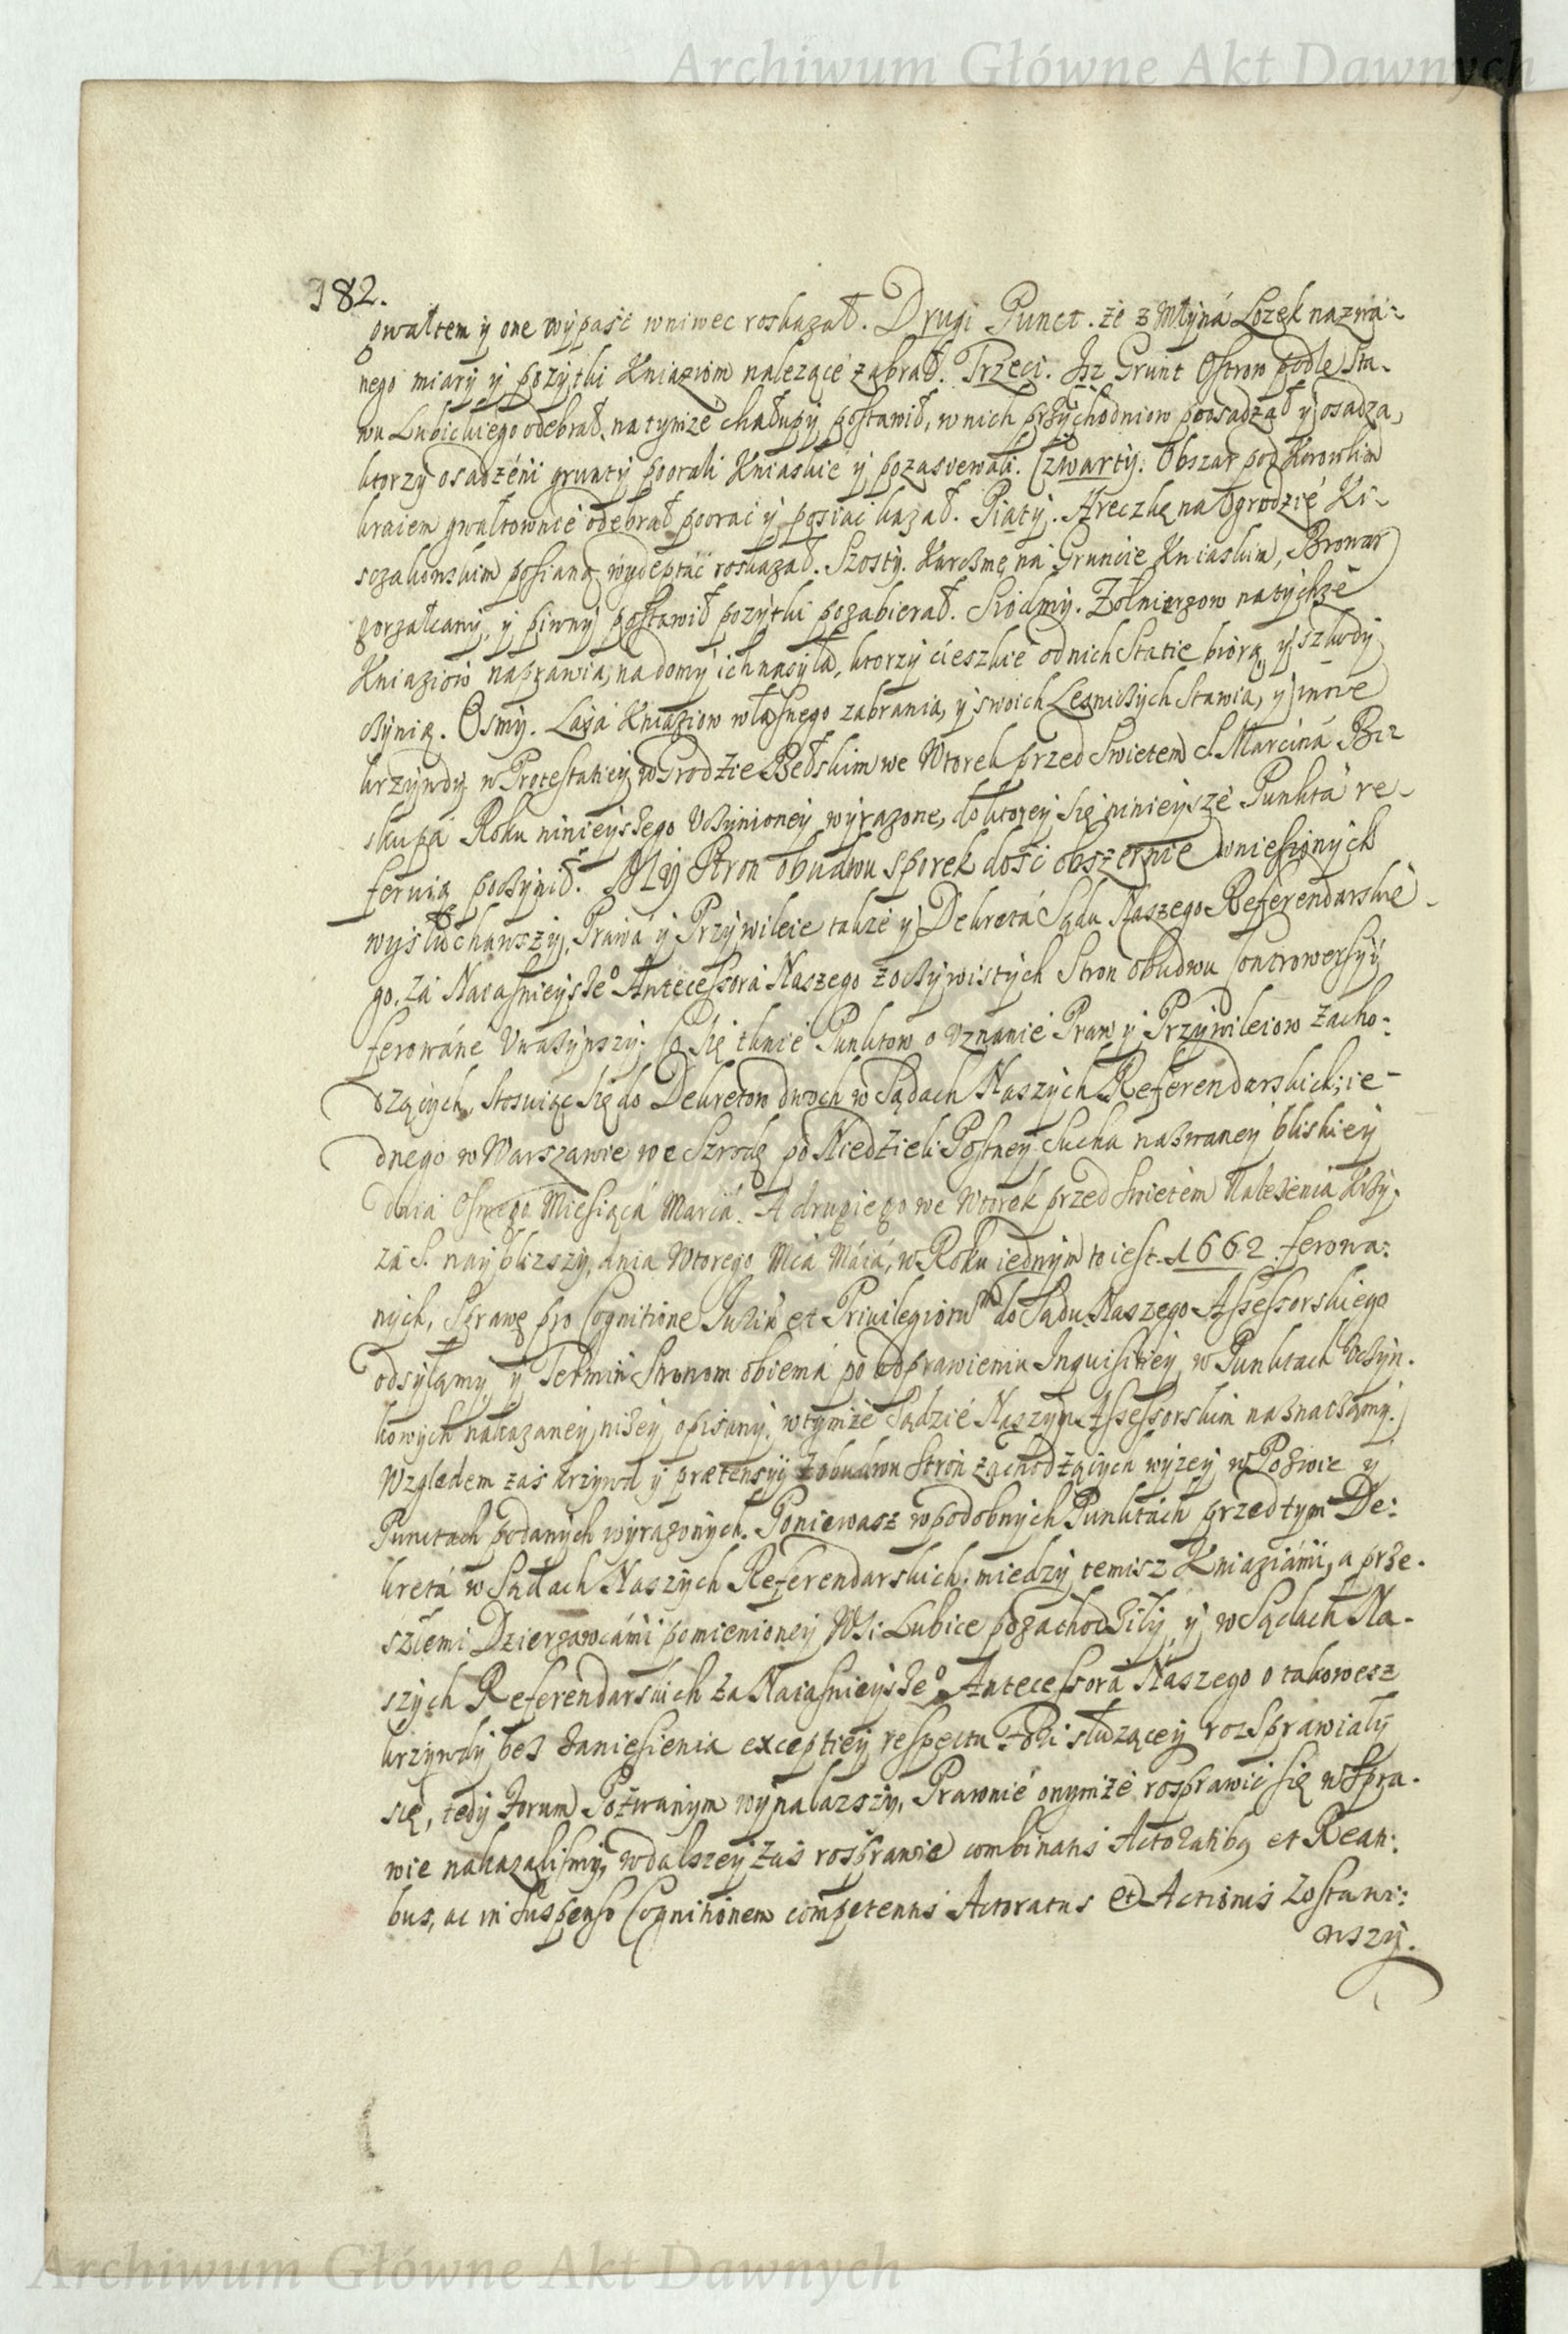 Archiwum Główne Akt Dawnych
182.
gwałtem y one wypaść wniwec roskazał. Drugi Punct. że z Młyná Lozek nazwa-
nego miary y pozytki Kniaziom nalezące zabrał. Trzeci. Isz Grunt Ostrow podle Sta-
wu Lubickiego odebrał, na tymze chałupy postawił, w nich przychodniow poosadzał y osadza,
ktorzy osadzeni grunty poorali Kniaskie y pozasiewali. Czwarty. Obszar pod Korowlim
kraiem gwałtownie odebrał poorać y posiać kazał. Piąty. Hreczkę na Ogrodzie Ki-
sczakowskim posianą wydeptać roskazał. Szosty. Karczmę na Gruncie Kniaskim, Browar
gorzałczany, y piwny postawił pozytki pozabierał. Siodmy. Zołnierzow na tychże
Kniaziow naprawia, na domy ich nasyła, ktorzy cieszkie od nich Statie biorą y szkody
czynią. Osmy. Lasá Kniaziow własnego zabrania, y swoich Lesniczych stawia, y inne
krzywdy w Protestatiey w Grodzie Bełskim we Wtorek przed Swietem S. Marcina Bis
skupa Roku ninieyszego Uczynioney wyrazone, do ktorey się ninieysze Punkta re-
feruią poczynił. My Stron obudwu sporek dość obszernie wniesionych
wysłuchawszy, Prawa y Przywileie takze y Dekreta Sądu Naszego Referendarskie-
go, za Naiasnieysze° Antecessora Naszego zoczywistych Stron obudwu Controwersyy
ferowane Uważywszy; Co się tknie Punktow o Uznanie Praw y Przywileiow zacho-
dzących, stosuiąc się do Dekretow dwoch w Sądach Naszych Referendarskich; ie-
dnego w Warszawie we Szrodę po Niedzieli Postney Sucha nazwaney bliskiey
dnia Osmego Miesiąca Marca. A drugiego we Wtorek przed Swietem Nalezienia Krzy-
za S. nayblizszy, dnia Wtorego Mca Maia, w Roku iednym to iest 1662. ferowa-
nych, Sprawę pro Cognitione Jurium et Privilegioru^m do Sądu Naszego Assessorskiego
odsyłamy, y Termin Stronom obiema po odprawieniu Inquisitiey w Punktach Uczyn-
kowych nakazaney nizey opisany, w tymże Sądzie Naszym Assessorskim naznaczamy.
Względem zaś krzywd y prætensyi z obudwu Stron zachodzących wyzey w Pozwie y
Punctach podanych wyrazonych. Poniewasz w podobnych Punktach przed tym De-
kreta w Sądach Naszych Referendarskich, miedzy temisz Kniaziami, a prze-
szłemi Dzierzawcámi pomienioney Wsi Lubice pozachodziły, y w Sądach Na-
szych Referendarskich za Naiasnieysze° Antecessora Naszego o takowesz
krzywdy bez zaniesienia exceptiey respectu Fori słuzącey rozsprawiały
się, tedy Forum Pozwanym wynalazszy, Prawnie onymże rosprawić się w Spra-
wie nakazalismy, w dalszey zaś rosprawie combinatis Actoratibq et Reati-
bus, ac in suspenso Cognitionem competentis Actoratus et Actionis zostawi-
wszy.
Archiwum Główne Akt Dawnych